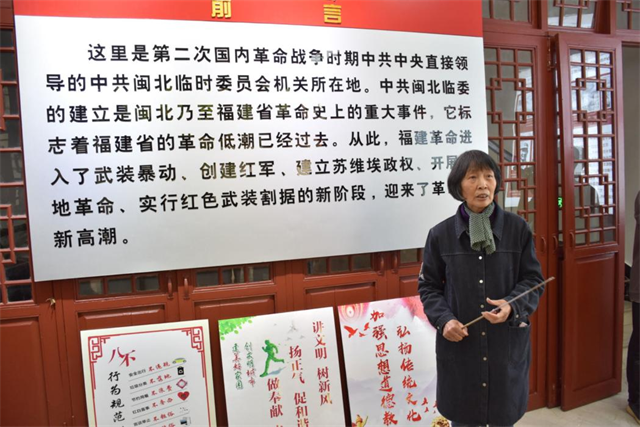 前 言
这里是第二次国内革命战争时期中共中央直接领
导的中共闽北临时委员会机关所在地。中共闽北临委
的建立是闽北乃至福建省革命史上的重大事件，它标
志着福建省的革命低潮已经过去。从此，福建革命进
入了武装暴动、创建红军、建立苏维埃政权、开展
地革命、实行红色武装割据的新阶段，迎来了革
新高潮。
八不
行为规范
讲文明 树新风
扬正气 促和谐
做奉献
弘扬传统文化
加强思想道德教